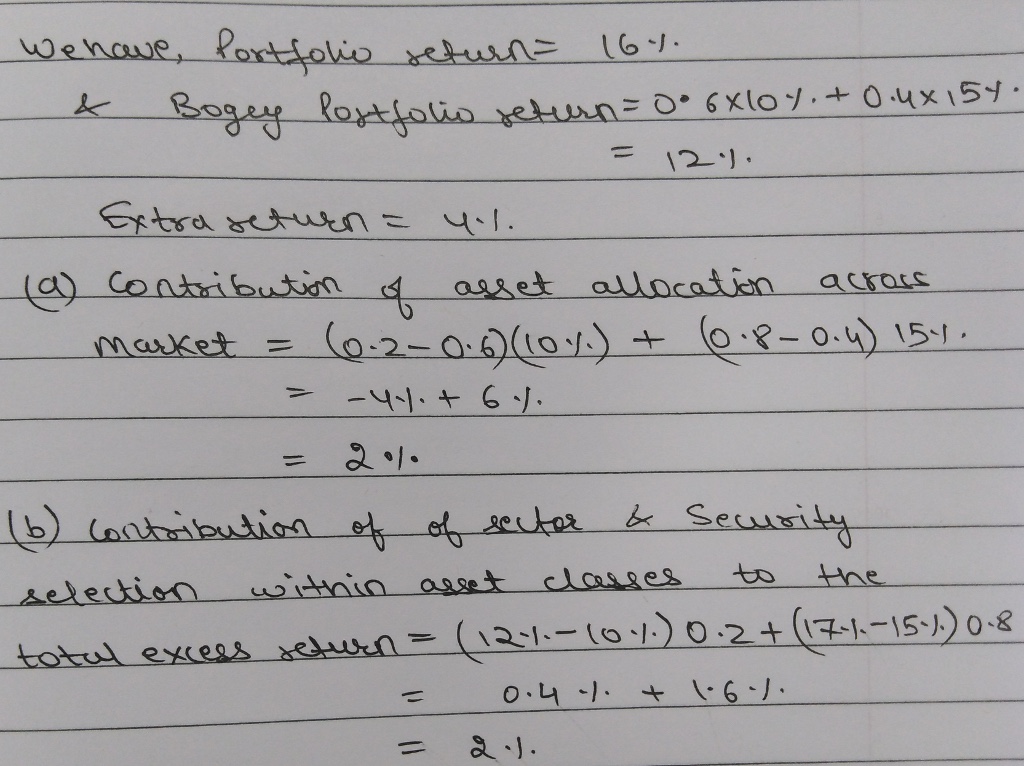 We have, Portfolio return = 16%.
& Bogey Portfolio return = 0.6x10%. + 0.4x15%.
= 12%.
Extra return = 4%.
(a) Contribution of asset allocation across
market = (0.2-0.6)(10%) + (0.8-0.4) 15%.
= -4%. + 6%.
= 2%.
(b) Contribution of of sector & Security
selection within asset classes to the
total excess return = (12%-10%) 0.2 + (17%-15%) 0.8
= 0.4% + 1.6%.
= 2%.